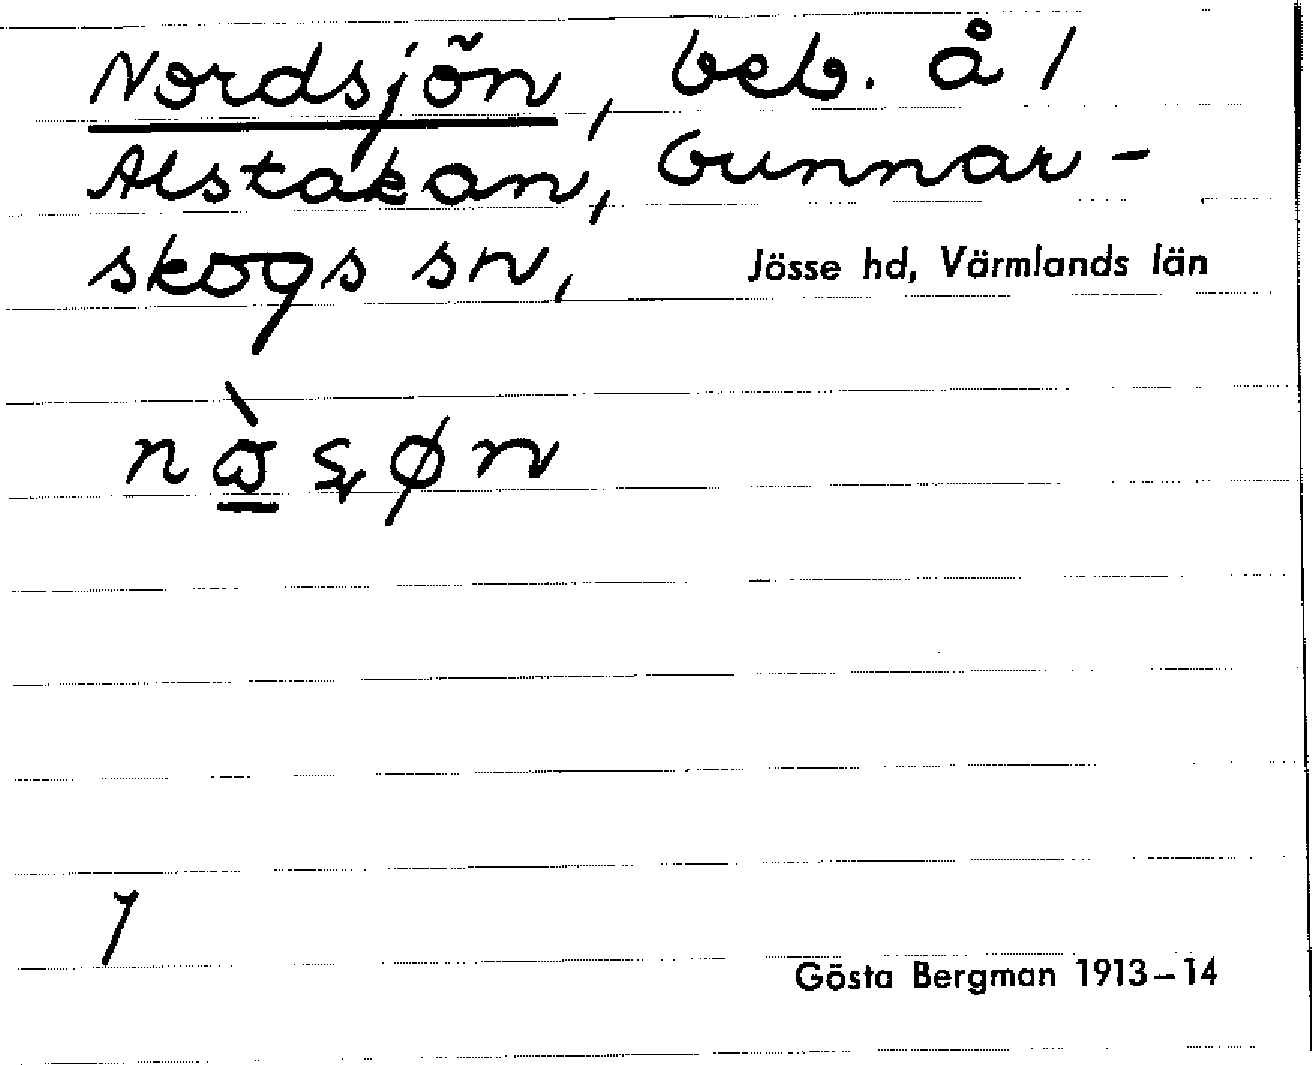 Nordsjön, beb. å /
Alstakan, Gunnar-
skogs sn, Jösse hd, Värmlands län
7
Gösta Bergman 1913–14